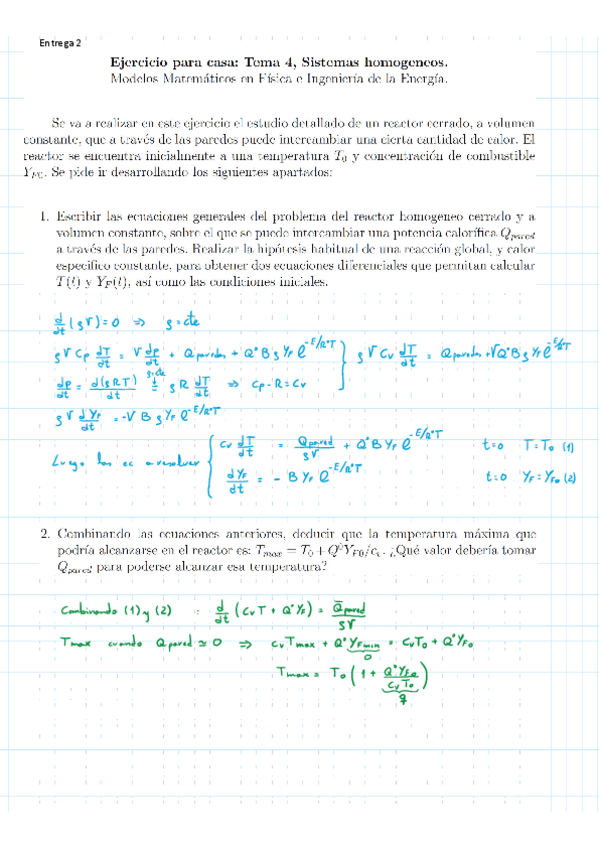 Entrega 2
Ejercicio para casa: Tema 4, Sistemas homogeneos.
Modelos Matemáticos en Física e Ingeniería de la Energía.
Se va a realizar en este ejercicio el estudio detallado de un reactor cerrado, a volumen
constante, que a través de las paredes puede intercambiar una cierta cantidad de calor. El
reactor se encuentra inicialmente a una temperatura T₀ y concentración de combustible
Y_F0. Se pide ir desarrollando los siguientes apartados:
1. Escribir las ecuaciones generales del problema del reactor homogeneo cerrado y a
volumen constante, sobre el que se puede intercambiar una potencia calorífica Q_pared
a través de las paredes. Realizar la hipótesis habitual de una reacción global, y calor
especifico constante, para obtener dos ecuaciones diferenciales que permitan calcular
T(t) y Y_F(t), así como las condiciones iniciales.
d/dt (ρV) = 0 ⇒ ρ = cte
ρV Cp dT/dt = V dp/dt + Q paredes + Q° B ρ Y_F e^(-E/R°T) } ρV Cv dT/dt = Q paredes + V Q° B ρ Y_F e^(-E/R°T)
dp/dt = d(ρRT)/dt =(ρ cte) ρ R dT/dt ⇒ Cp - R = Cv
ρV dY_F/dt = -V B ρ Y_F e^(-E/R°T)
Luego las ec a resolver { Cv dT/dt = Q pared/ρV + Q° B Y_F e^(-E/R°T) t=0 T=T₀ (1)
dY_F/dt = - B Y_F e^(-E/R°T) t=0 Y_F=Y_F0 (2)
2. Combinando las ecuaciones anteriores, deducir que la temperatura máxima que
podría alcanzarse en el reactor es: T_max = T₀ + Q⁰Y_F0/c_v. ¿Qué valor debería tomar
Q_pared para poderse alcanzar esa temperatura?
Combinando (1) y (2) : d/dt (Cv T + Q° Y_F) = Q pared/ρV
Tmax cuando Q pared ≃ 0 ⇒ Cv Tmax + Q° Y_Fmin (0) = Cv T₀ + Q° Y_F0
Tmax = T₀ (1 + Q° Y_F0/Cv T₀)
q